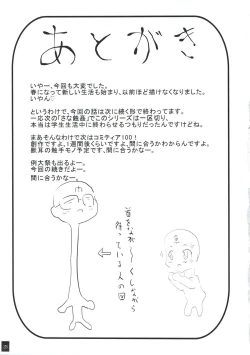 あとがき
いやー、今回も大変でした。
春になって新しい生活も始まり、以前ほど描けなくなりました。
いやん♡
というわけで、今回の話は次に続く形で終わってます。
一応次の「さな蝕姦」でこのシリーズは一区切り、
本当は学生生活中に終わらせるつもりだったんですけどね。
まあそんなわけで次はコミティア100！
創作ですよ。1週間後くらいですよ、間に合うかわからんですよ。
獣耳の触手モノ予定です、間に合うかなー。
例大祭も出るよー。
今回の続きだよー。
間に合うかなー。
首をなが〜くしながら
待っている人の図